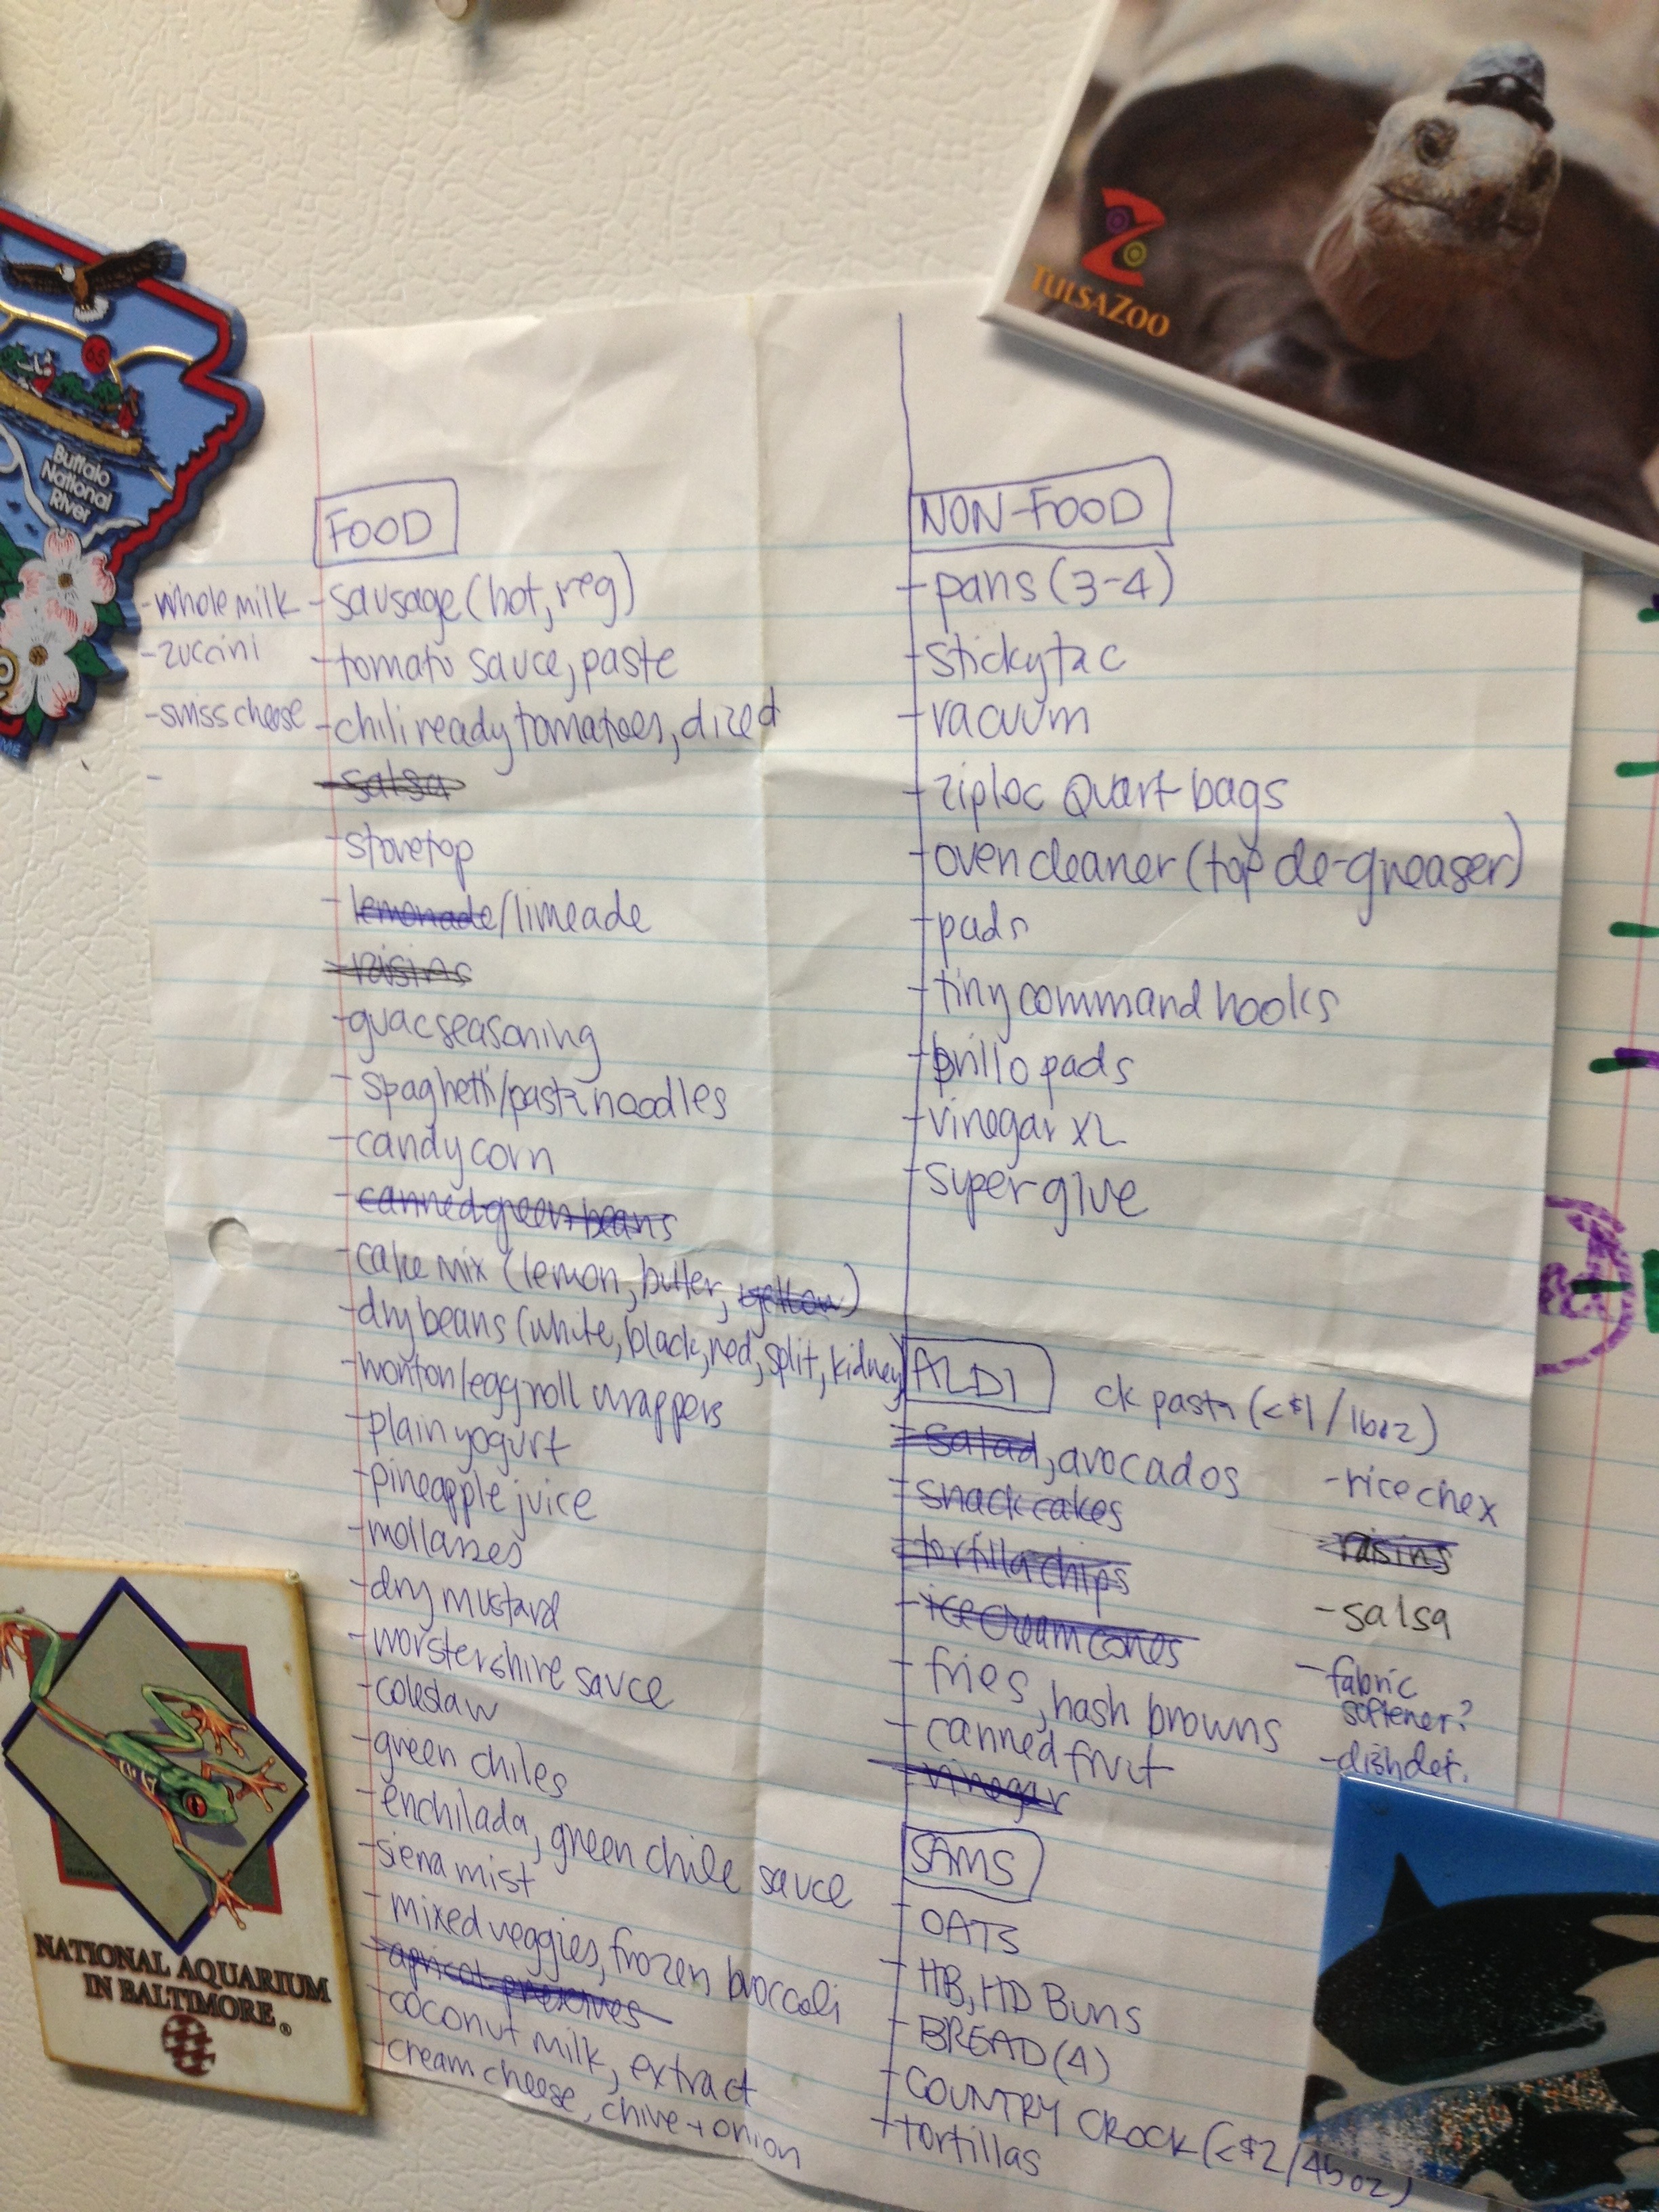 TULSA ZOO
65
Buffalo
National
River
FOOD
-whole milk
-zuccini
-swiss cheese
-
-sausage (hot, reg)
-tomato sauce, paste
-chili ready tomatoes, diced
-salsa
-stovetop
-lemonade/limeade
-raisins
-guac seasoning
-spaghetti/pasta noodles
-candy corn
-canned green beans
-cake mix (lemon, butter, yellow)
-dry beans (white, black, red, split, kidney)
-wonton/eggroll wrappers
-plain yogurt
-pineapple juice
-mollasses
-dry mustard
-worstershire sauce
-coleslaw
-green chiles
-enchilada, green chile sauce
-siera mist
-mixed veggies, frozen broccoli
-apricot preserves
-coconut milk, extract
-cream cheese, chive + onion
NON-FOOD
-pans (3-4)
-stickytac
-vacuum
-ziploc quart bags
-oven cleaner (top de-greaser)
-pads
-tiny command hooks
-brillo pads
-vinegar XL
-super glue
ALDI
ck pasta (<$1/16oz)
-salad, avocados
-snack cakes
-tortilla chips
-ice cream cones
-fries, hash browns
-canned fruit
-vinegar
-rice chex
-raisins
-salsa
-fabric
softener?
-dishdet.
SAMS
-OATS
-HB, HD BUNS
-BREAD (4)
-COUNTRY CROCK (<$2/45oz)
-tortillas
NATIONAL AQUARIUM
IN BALTIMORE®